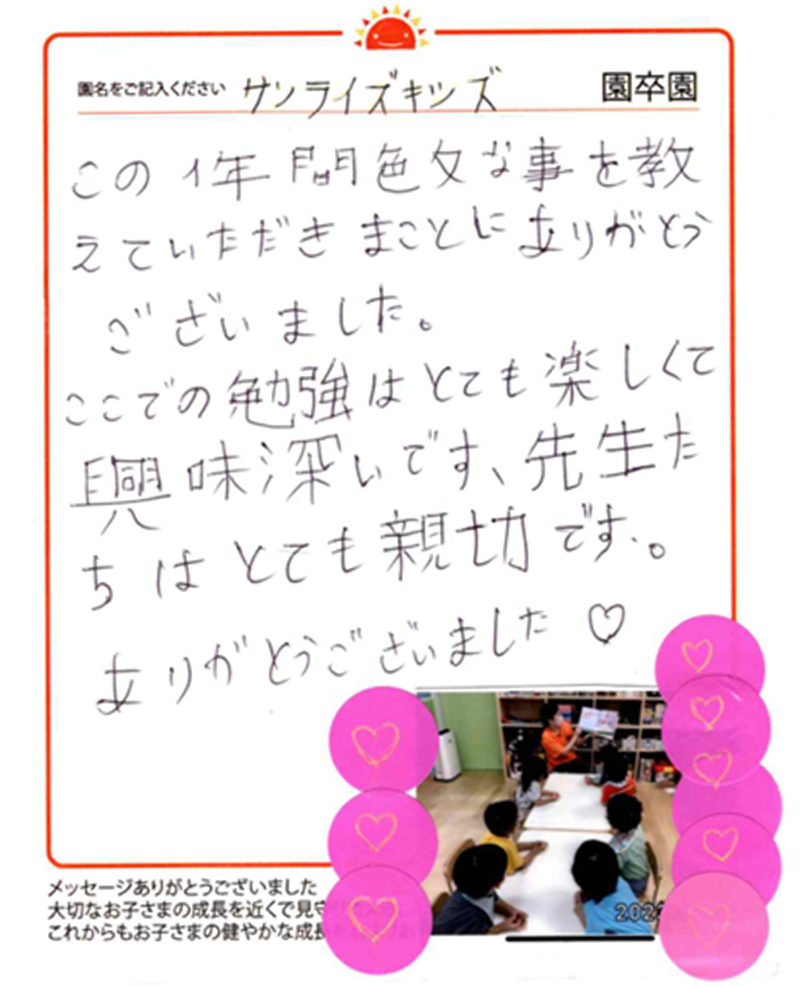 園名をご記入ください サンライズキッズ 園卒園
この1年間色々な事を教
えていただきまことにありがとう
ございました。
ここでの勉強はとても楽しくて
興味深いです、先生た
ちはとても親切です。
ありがとうございました♡
メッセージありがとうございました
大切なお子さまの成長を近くで見守
これからもお子さまの健やかな成長
202